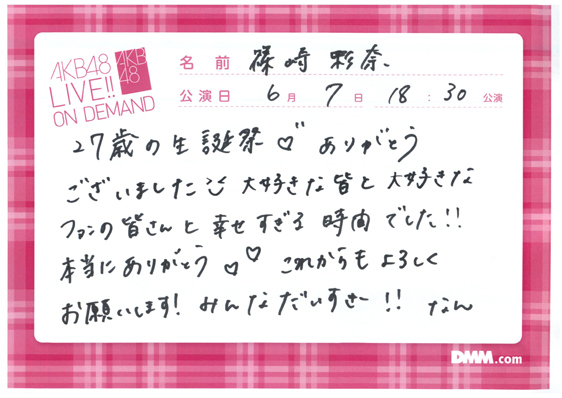 AKB48
LIVE!!
ON DEMAND
AKB
48
名前 篠崎彩奈
公演日 6月7日 18:30公演
27歳の生誕祭♡ ありがとう
ございました 大好きな皆と大好きな
ファンの皆さんと幸せすぎる時間でした!!
本当にありがとう♡♡ これからもよろしく
お願いします! みんなだいすきー!! なん
DMM.com